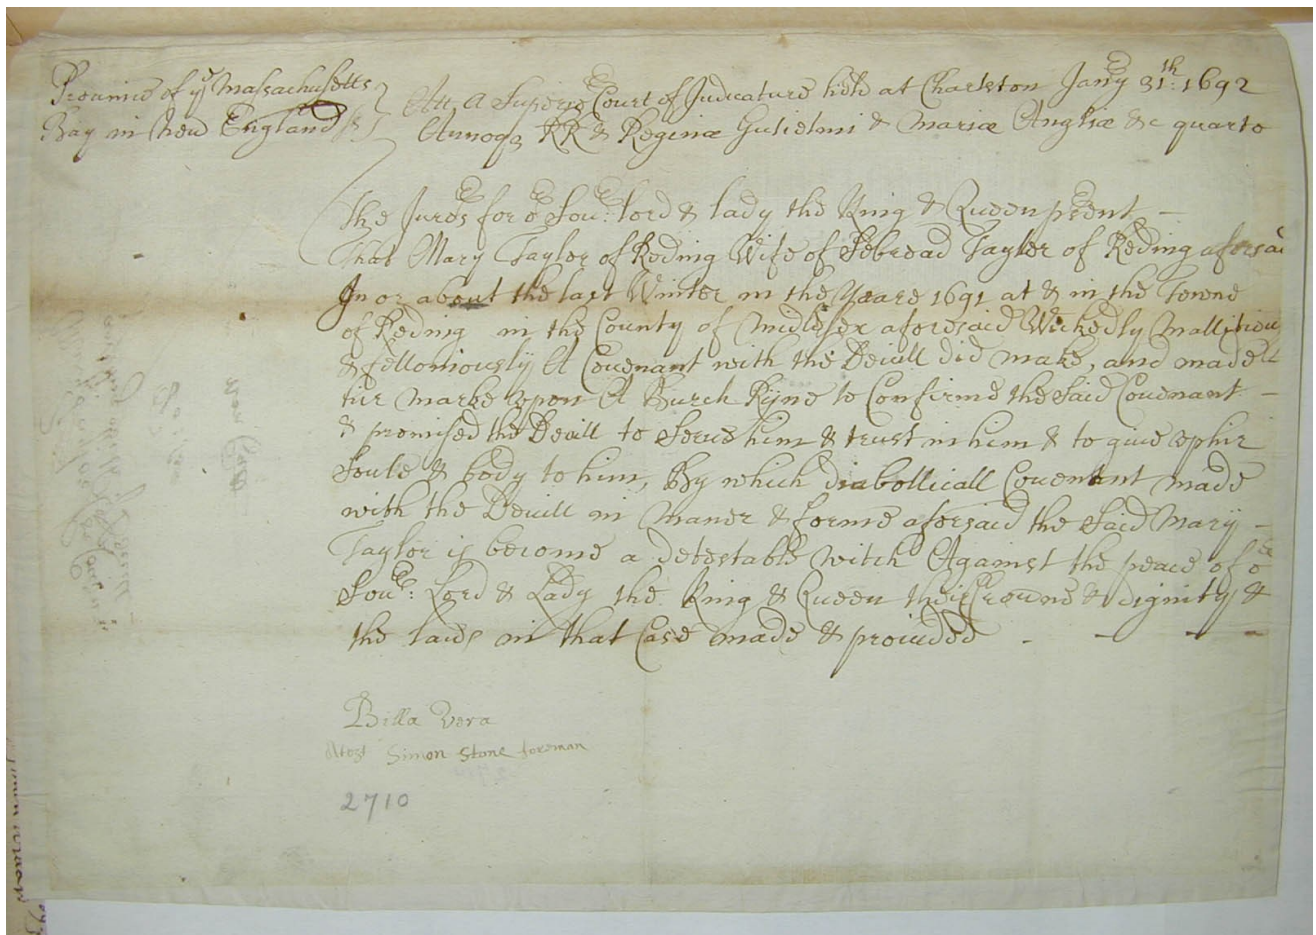 Prouince of ye Massachusetts
Bay in New England ss
Att A Superior Court of Judicature held at Charlston Janry 31th: 1692
Annoqe RRs & Reginæ Gulielmi & Mariæ Angliæ &c quarto
The Jurors for or Sour: lord & lady the King & Queen prsent -
That Mary Taylor of Reding Wife of Sebread Taylor of Reding aforsaid
In or about the last Winter in the Yeare 1691 at & in the Towne
of Reding in the County of Midlesex aforesaid Wickedly Mallitiou
& felloniously A Couenant with the Deuill did make, and made
hir marke vpon A Burch Ryne to Confirme the said Couenant -
& promised the Deuill to serue him & trust in him & to giue vp hir
Soule & body to him, By which diabollicall Couenant made
with the Deuill in maner & forme aforsaid the said Mary -
Taylor is become a detestable witch Against the peace of or
Sour: Lord & Lady the King & Queen their Crowne & dignity &
the laws in that Case made & prouided - - - -
Billa Vera
Atest Simon Stone foreman
2710